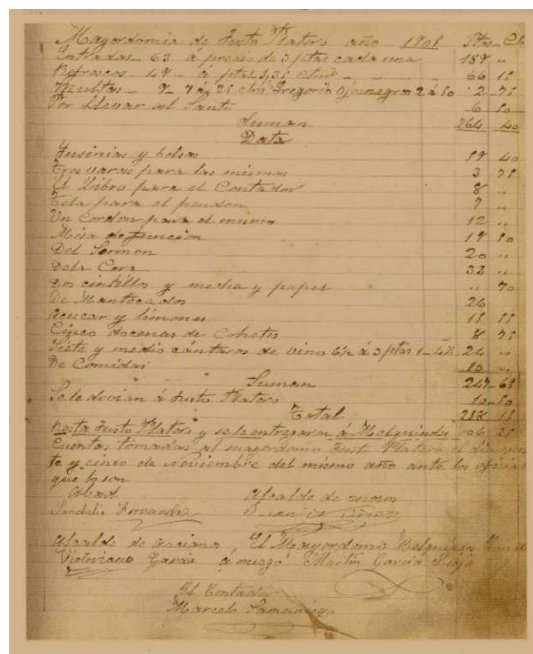 Mayordomia de Justo Platero año 1908 Ptas Cts
Entradas 63 á precio de 3 ptas cada una 189 "
Refrescos 49 á ptas 1,35 66 15
Multas 7 á 25 cts Gregorio 2 75
Por llevar al Santo 6 50
Suman 264 40
Data
Insinias y bolsa 40
Tres varas para las mismas 3 75
El Libro para el Contador 8 "
Tela para el pendon 7 "
Un Cordon para el mismo 12 "
Misa de funcion 17 50
Del Sermon 20 "
Dela Cera 33 "
Dos cintillos y mecha y papel " 70
De Mantecados 26
Azucar y limones
Cinco docenas de Cohetes 8 75
Siete y medio cántaros de vino á 3 ptas 24 "
De Comidas 10 "
Suman 247 65
Sele devian á Justo Platero 10 50
Total 258 15
Resta Justo Platero y sele entregaron á Melquiades 006 25
Cuentas tomadas al mayordomo Justo Platero el dia vein
te y cinco de Noviembre del mismo año ante los oficiales
que lo son
Abad Alcalde de mozos
Sandalio Fernandez Juan
Alcalde de anciano El Mayordomo Melquiades
Victoriano Garcia á ruego Martin Garcia
El Contador
Marcelo Samaniego